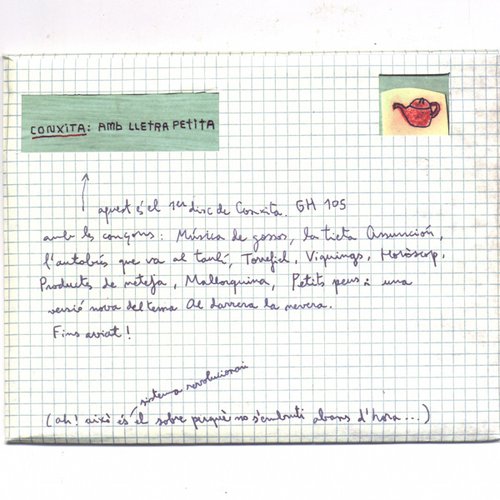 CONXITA: AMB LLETRA PETITA
aquest és el 1er disc de Conxita. GH 105
amb les cançons: Música de gossos, la tieta Assunción,
l'autobús que va al tanhí, Torrefiel, Viquings, Horòscop,
Productes de neteja, Mallorquina, Petits peus i una
versió nova del tema Al darrera la nevera.
Fins aviat!
sistema revolucionari
(ah! això és el sobre perquè no s'embruti abans d'hora...)